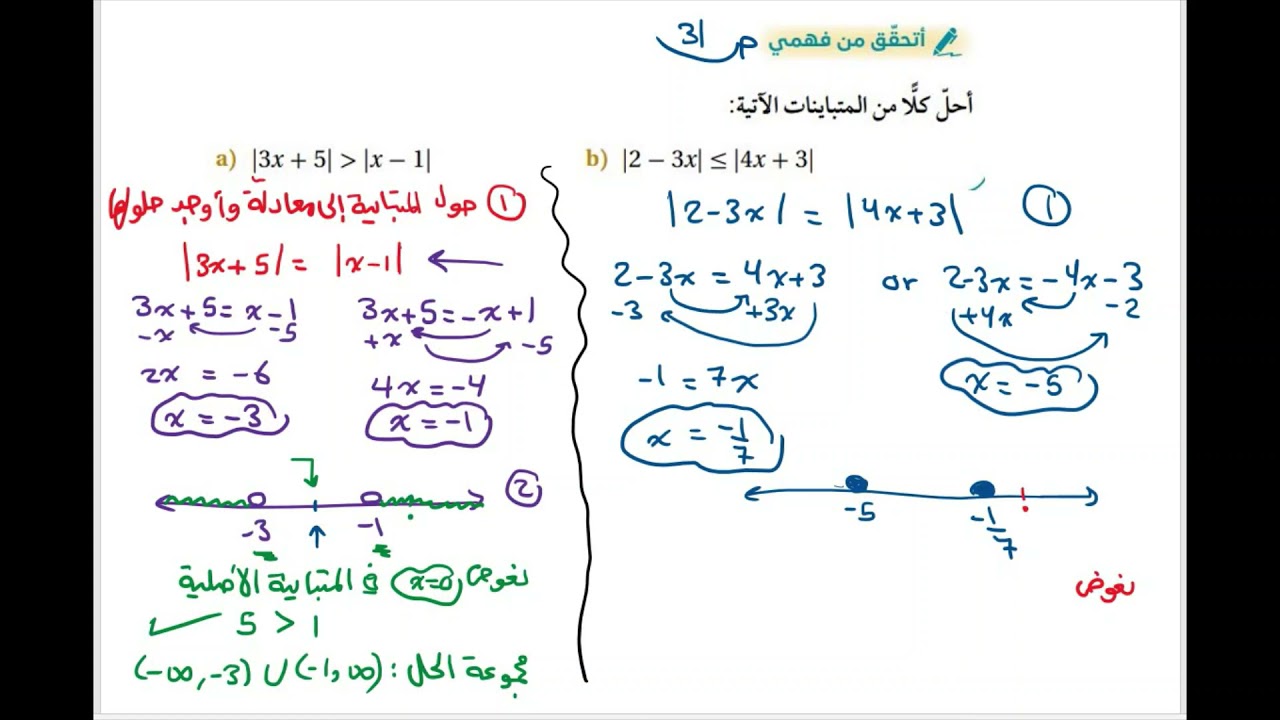 أتحقّق من فهمي ص 31
أحلّ كلًّا من المتباينات الآتية:
a) |3x + 5| > |x − 1|
① حول المتباينة إلى معادلة وأوجد حلولها
|3x+5| = |x-1|
3x+5 = x-1
-x -5
2x = -6
x = -3
3x+5 = -x+1
+x -5
4x = -4
x = -1
②
-3 -1
نعوض x=0 في المتباينة الأصلية
5 > 1
مجموعة الحل: (-∞, -3) ∪ (-1, ∞)
b) |2 − 3x| ≤ |4x + 3|
|2-3x| = |4x+3| ①
2-3x = 4x+3 or 2-3x = -4x-3
-3 +3x
-1 = 7x
x = -1/7
+4x -2
x = -5
-5 -1/7
نعوض